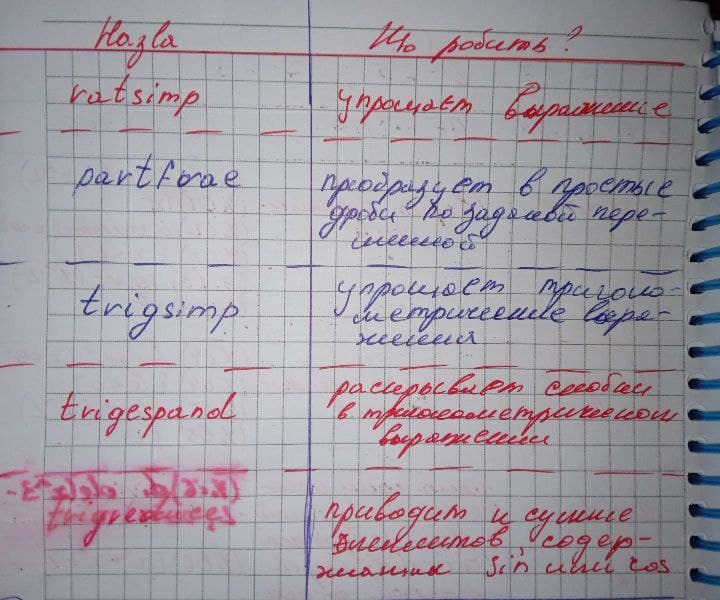 Назва Що робить?
ratsimp упрощает выражение
partfrac преобразует в простые
дроби по задамой пере-
менной
trigsimp упрощает тригоно-
метрические выра-
жения
trigespand раскрывает скобки
в тригонометрическом
выражении
trigreduces приводит к сумме
элементов, содер-
жащих sin или cos